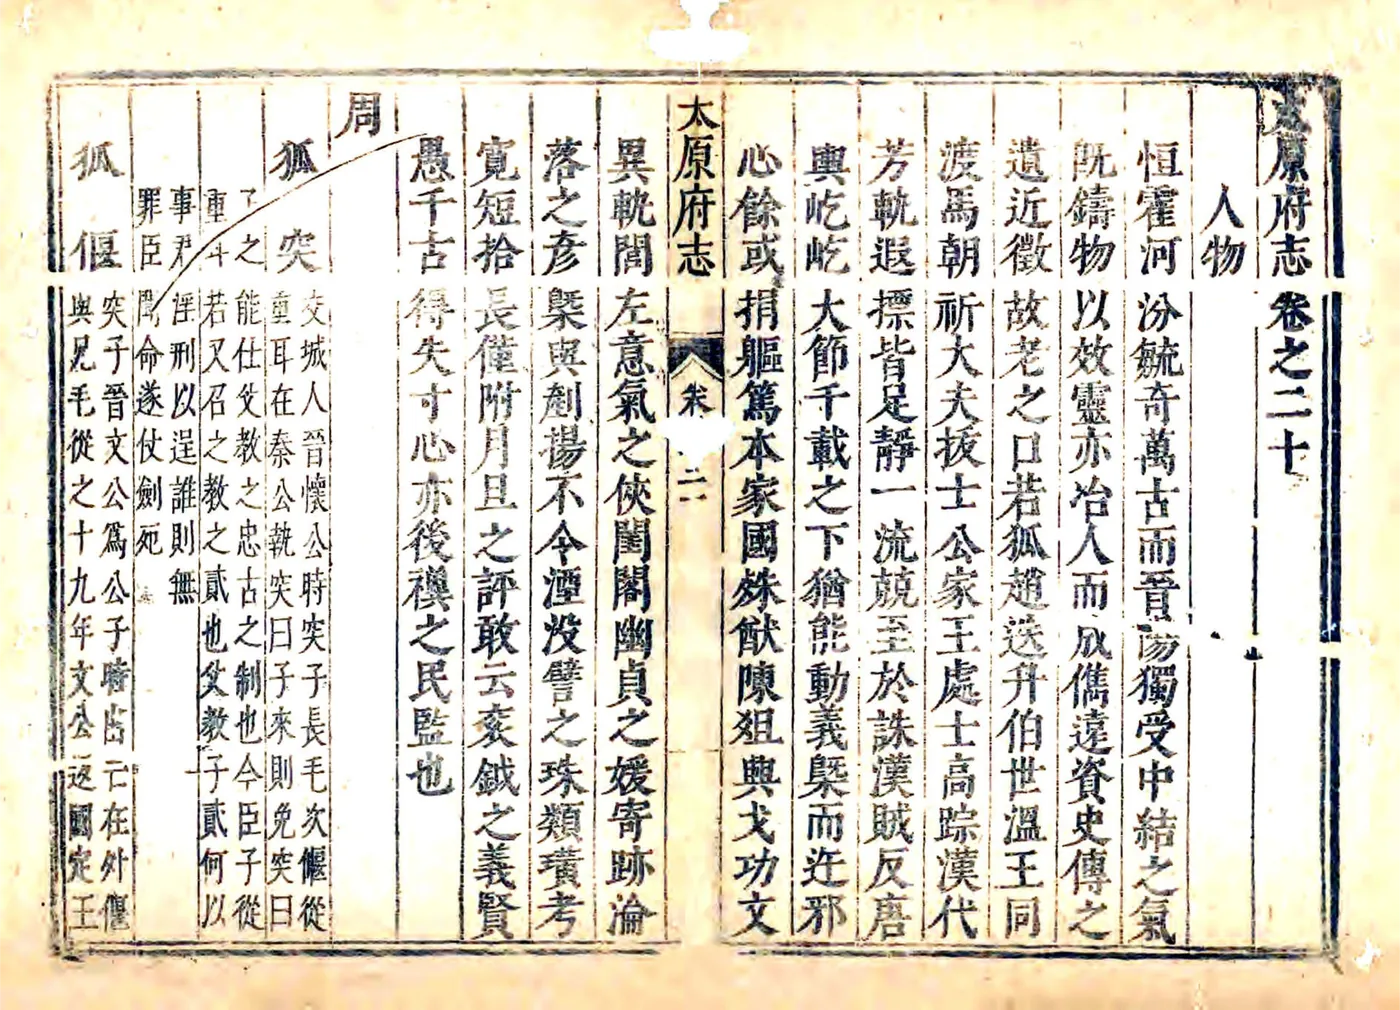 太原府志卷之二十
人物
恒霍河汾毓奇萬古而晉陽獨受中結之氣
既鑄物以效靈亦冶人而成儁遠資史傳之
遺近徵故老之口若狐趙迭升伯世溫王同
渡馬朝祈大夫拔士公家王處士高踪漢代
芳軌遐摽皆足靜一流兢至於誅漢賊反唐
輿屹屹大節千載之下猶能動義槩而迕邪
心餘或捐軀篤本家國殊猷陳俎輿戈功文
太原府志 二
異軌閭左意氣之俠閨閣幽貞之媛寄跡淪
落之彥槩與剷揚不令湮没譬之珠纇璜考
寛短拾長僅附月旦之評敢云衮鉞之義賢
愚千古得失寸心亦後禩之民監也
周
狐突
交城人晉懷公時突子長毛次偃從
重耳在秦公執突曰子來則免突曰
子之能仕父教之忠古之制也今臣子從
重耳若又召之教之貳也父教子貳何以
事君淫刑以逞誰則無
罪臣聞命遂仗劍死
狐偃
突子晉文公爲公子時出亡在外偃
與兄毛從之十九年文公返國定王